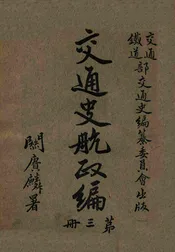 交通部
鐵道部
交通史編纂委員會出版
交通史航政編
第三冊
關賡麟署